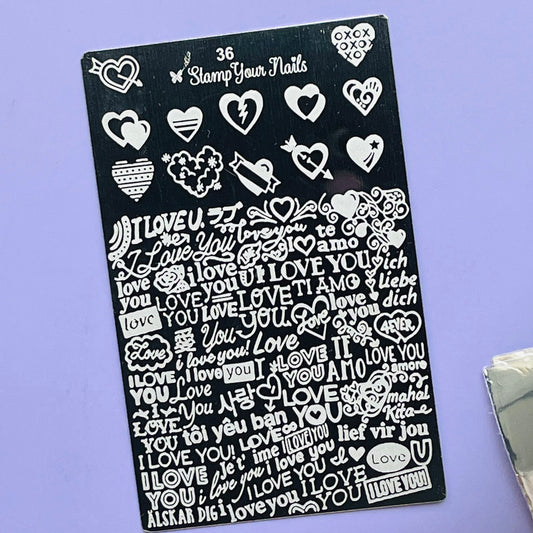 36
Stamp Your Nails
XOXO
XOXO
XO
I LOVE U
I Love You
love you
te
amo
I
love
you
i love
U!
I LOVE YOU
ich
liebe
dich
LOVE
YOU
LOVE
LOVE
YOU
TI AMO
love
you
love
Love
4EVER
Love
愛
You
Love
i love you!
I LOVE
YOU
I love you
I
I
LOVE
YOU
TE
AMO
LOVE YOU
amore
Love
You
사랑
LOVE
YOU
mahal
Kita
I
LOVE
YOU
tôi yêu bạn
YOU
lief vir jou
I LOVE YOU!
LOVE
I LOVE YOU
je t'ime
i love you
I LOVE
YOU
i love you
I
Love
U
I LOVE YOU
I LOVE
YOU
I LOVE YOU!
ÄLSKAR DIG
i love you